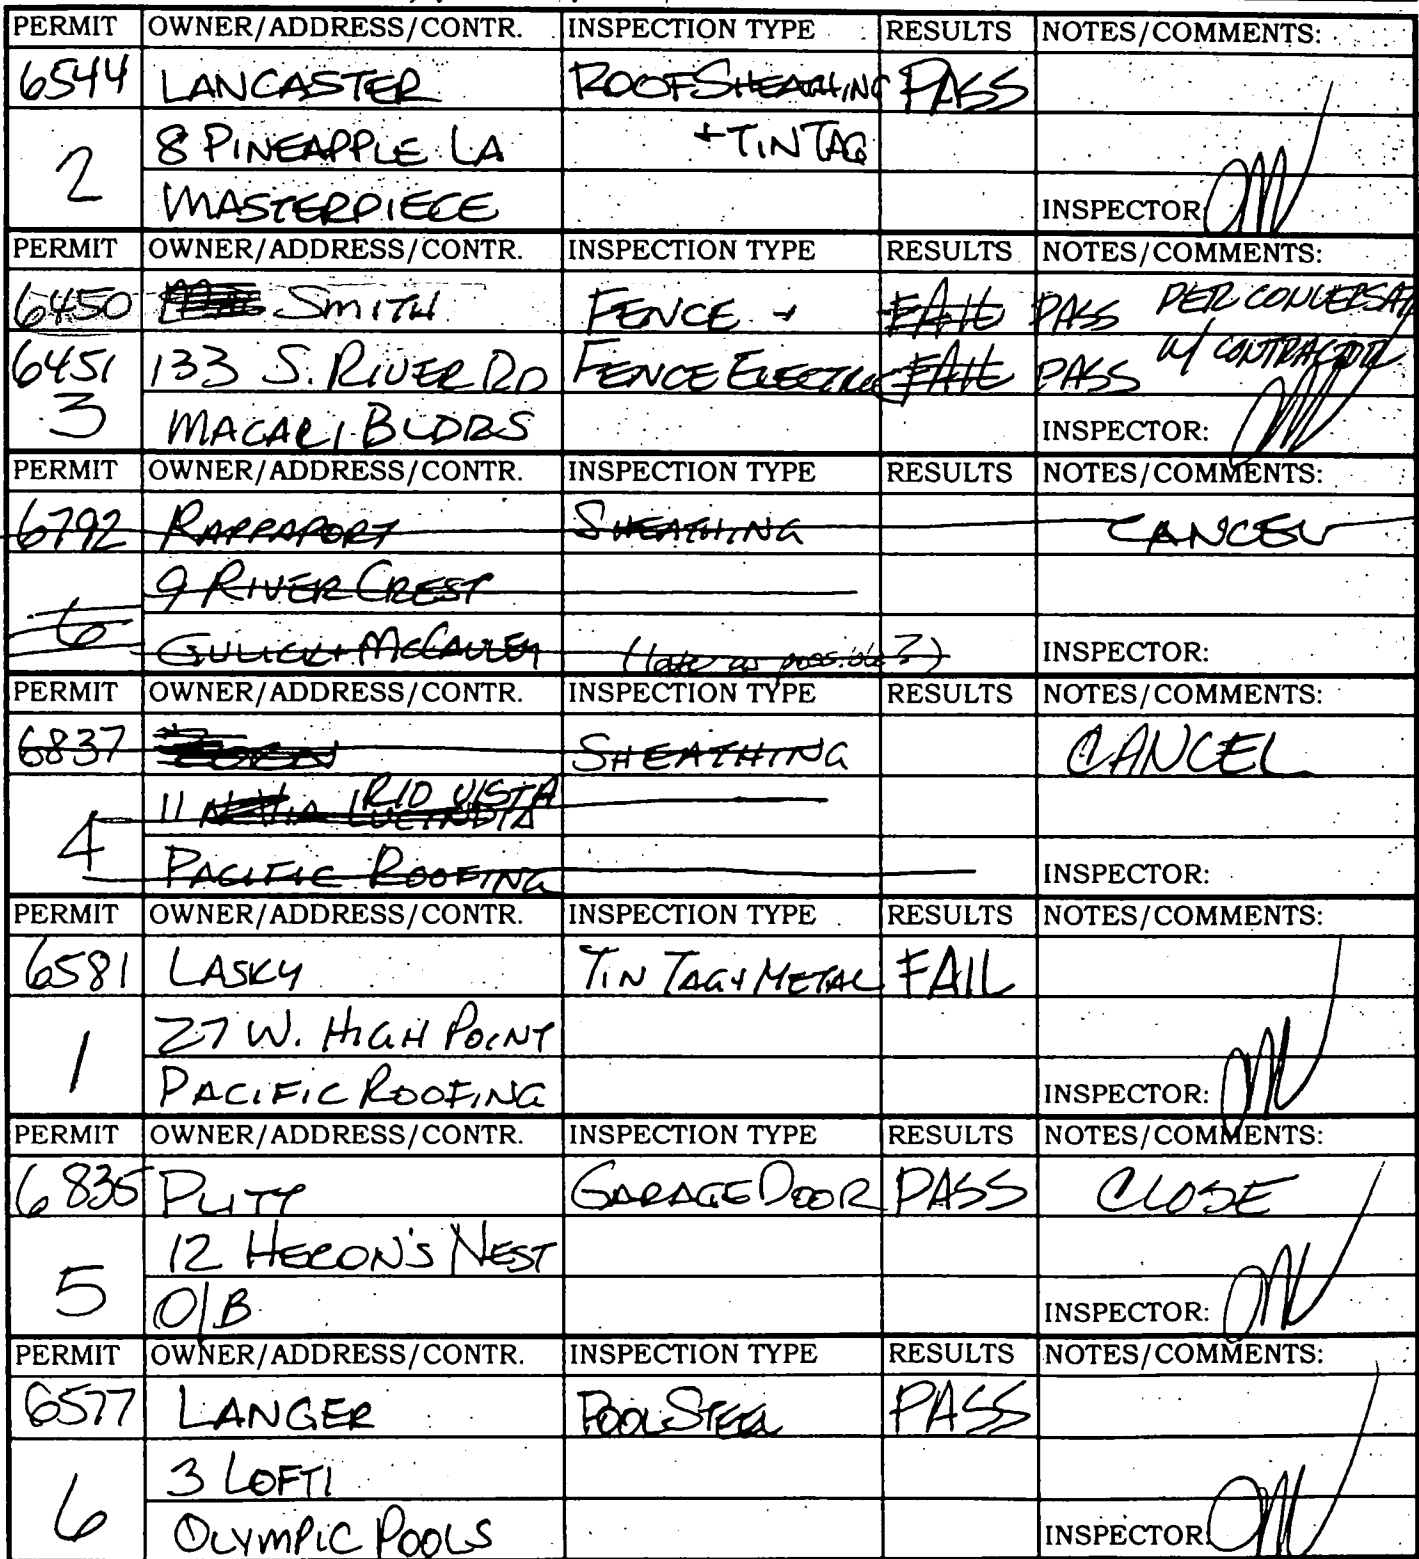 PERMIT OWNER/ADDRESS/CONTR. INSPECTION TYPE RESULTS NOTES/COMMENTS:
6544 LANCASTER ROOF SHEATHING PASS
2 8 PINEAPPLE LA + TIN TAG
MASTERPIECE INSPECTOR:
PERMIT OWNER/ADDRESS/CONTR. INSPECTION TYPE RESULTS NOTES/COMMENTS:
6450 SMITH FENCE + FAIL PASS PER CONVERSAT
6451 133 S. RIVER RD FENCE ELECTRIC FAIL PASS W/ CONTRACTOR
3 MACARI BLDRS INSPECTOR:
PERMIT OWNER/ADDRESS/CONTR. INSPECTION TYPE RESULTS NOTES/COMMENTS:
6792 RAPPAPORT SHEATHING CANCEL
9 RIVER CREST
6 GULICK + McCAULEY (late as possible?) INSPECTOR:
PERMIT OWNER/ADDRESS/CONTR. INSPECTION TYPE RESULTS NOTES/COMMENTS:
6837 SHEATHING CANCEL
11 RIO VISTA
LUCINDIA
4 PACIFIC ROOFING INSPECTOR:
PERMIT OWNER/ADDRESS/CONTR. INSPECTION TYPE RESULTS NOTES/COMMENTS:
6581 LASKY TIN TAG + METAL FAIL
1 27 W. HIGH POINT
PACIFIC ROOFING INSPECTOR:
PERMIT OWNER/ADDRESS/CONTR. INSPECTION TYPE RESULTS NOTES/COMMENTS:
6835 PUTT GARAGE DOOR PASS CLOSE
5 12 HERON'S NEST
O/B INSPECTOR:
PERMIT OWNER/ADDRESS/CONTR. INSPECTION TYPE RESULTS NOTES/COMMENTS:
6577 LANGER POOL STEEL PASS
6 3 LOFTI
OLYMPIC POOLS INSPECTOR: